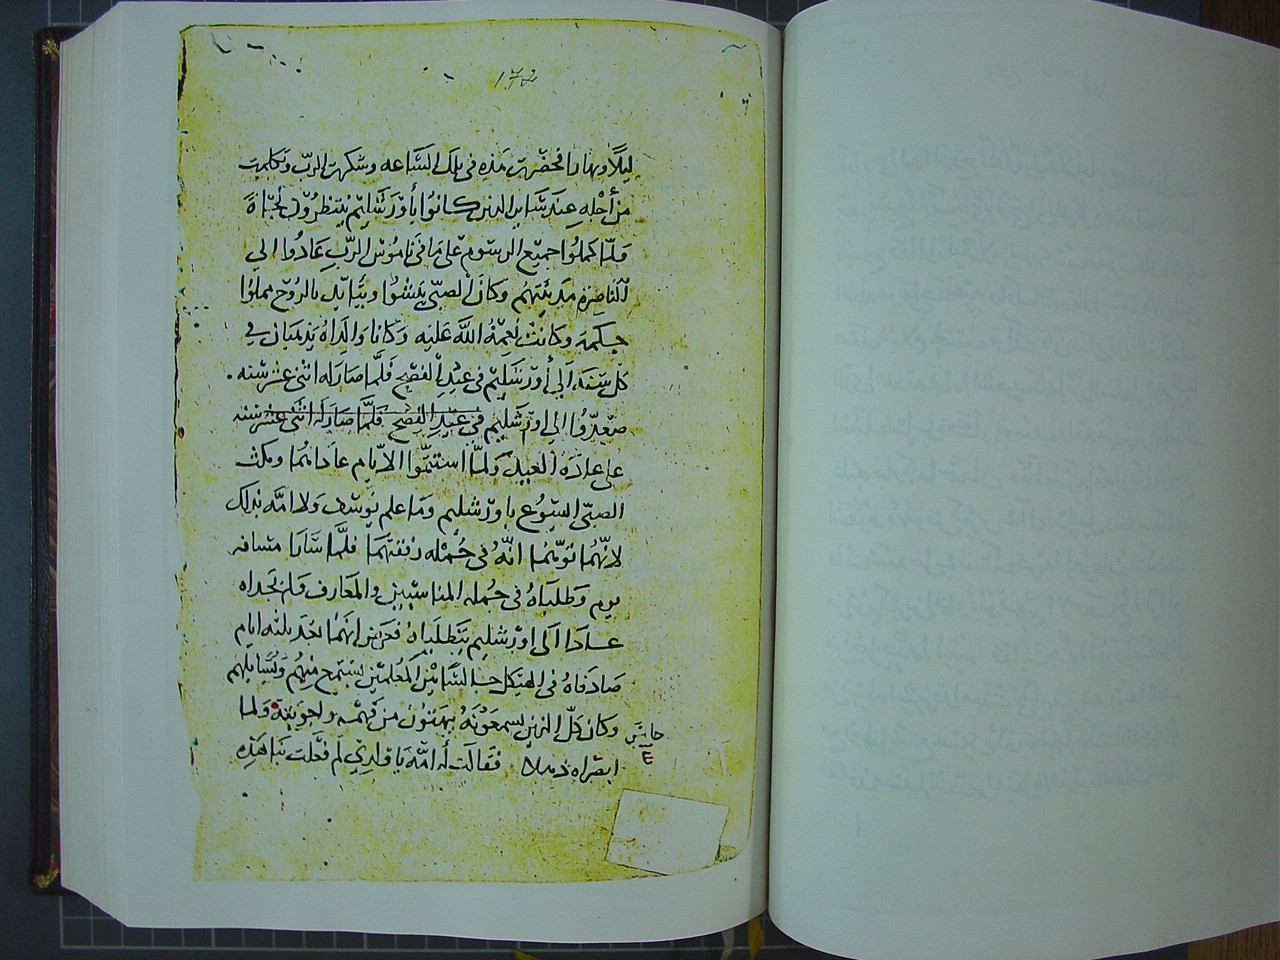 ١٧٢
ليلًا ونهارا فحضرت هذه في تلك الساعه وشكرت الرب وتكلمت
من أجله عند سَاير الذين كانوا بأورشليم ينتظرون نجاة
فلمّا كملوا جميع الرسوم على ما في ناموس الرب عادوا الي
الناصرة مدينتهم وكان الصبي ينشوا ويتايّد بالروح مملوا
حكمة وكانت نعمة الله عليه وكانا والداه يذهبان في
كل سنه الي أورشليم في عيد الفصح فلمّا صار له اثني عشر سنه
صعدوا الي اورشليم في عيد الفصح فلمّا صار له اثني عشر سنه
على عادة العيد ولما استتمّوا الايام عاداتهما ومكث
الصبي اليسوع باورشليم وما علم يوسف ولا امّه بذلك
لانّهما توهّما انّه في جمله رفقتهما فلمّا سَارا مسافه
يوم وطلباه في جمله المناسبين والمعارف ولم يجداه
عادا الى اورشليم يتطلباه فعرض انهما بعد ثلثه ايام
صَادفاه في الهيكل جالسًا بين المعلمين يستمع منهم ويُسايلهم
وكان كلّ الذين يسمعونه يبهتون من فهمه واجوبته ولما
حاش
ابصراه ذهلا فقالت له امّه يا ولدي لم فعلت بنا هذه